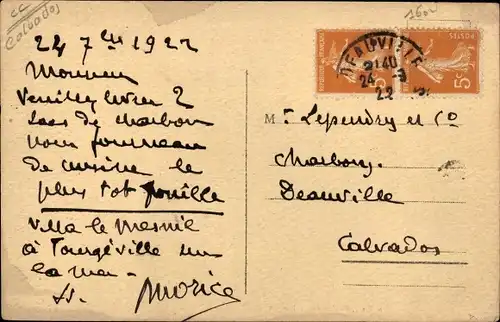 cc
Calvados
24 7bre 1922
Monsieur
Veuillez livrer 2
sacs de charbon
pour fourneau
de cuisine le
plus tôt possible
villa le Mesnil
à Tourgéville sur
la mer
Morice
DEAUVILLE
21 40
24 - 9
22
POSTES
5c
5c
M r Lependry et Co
Charbons
Deauville
Calvados